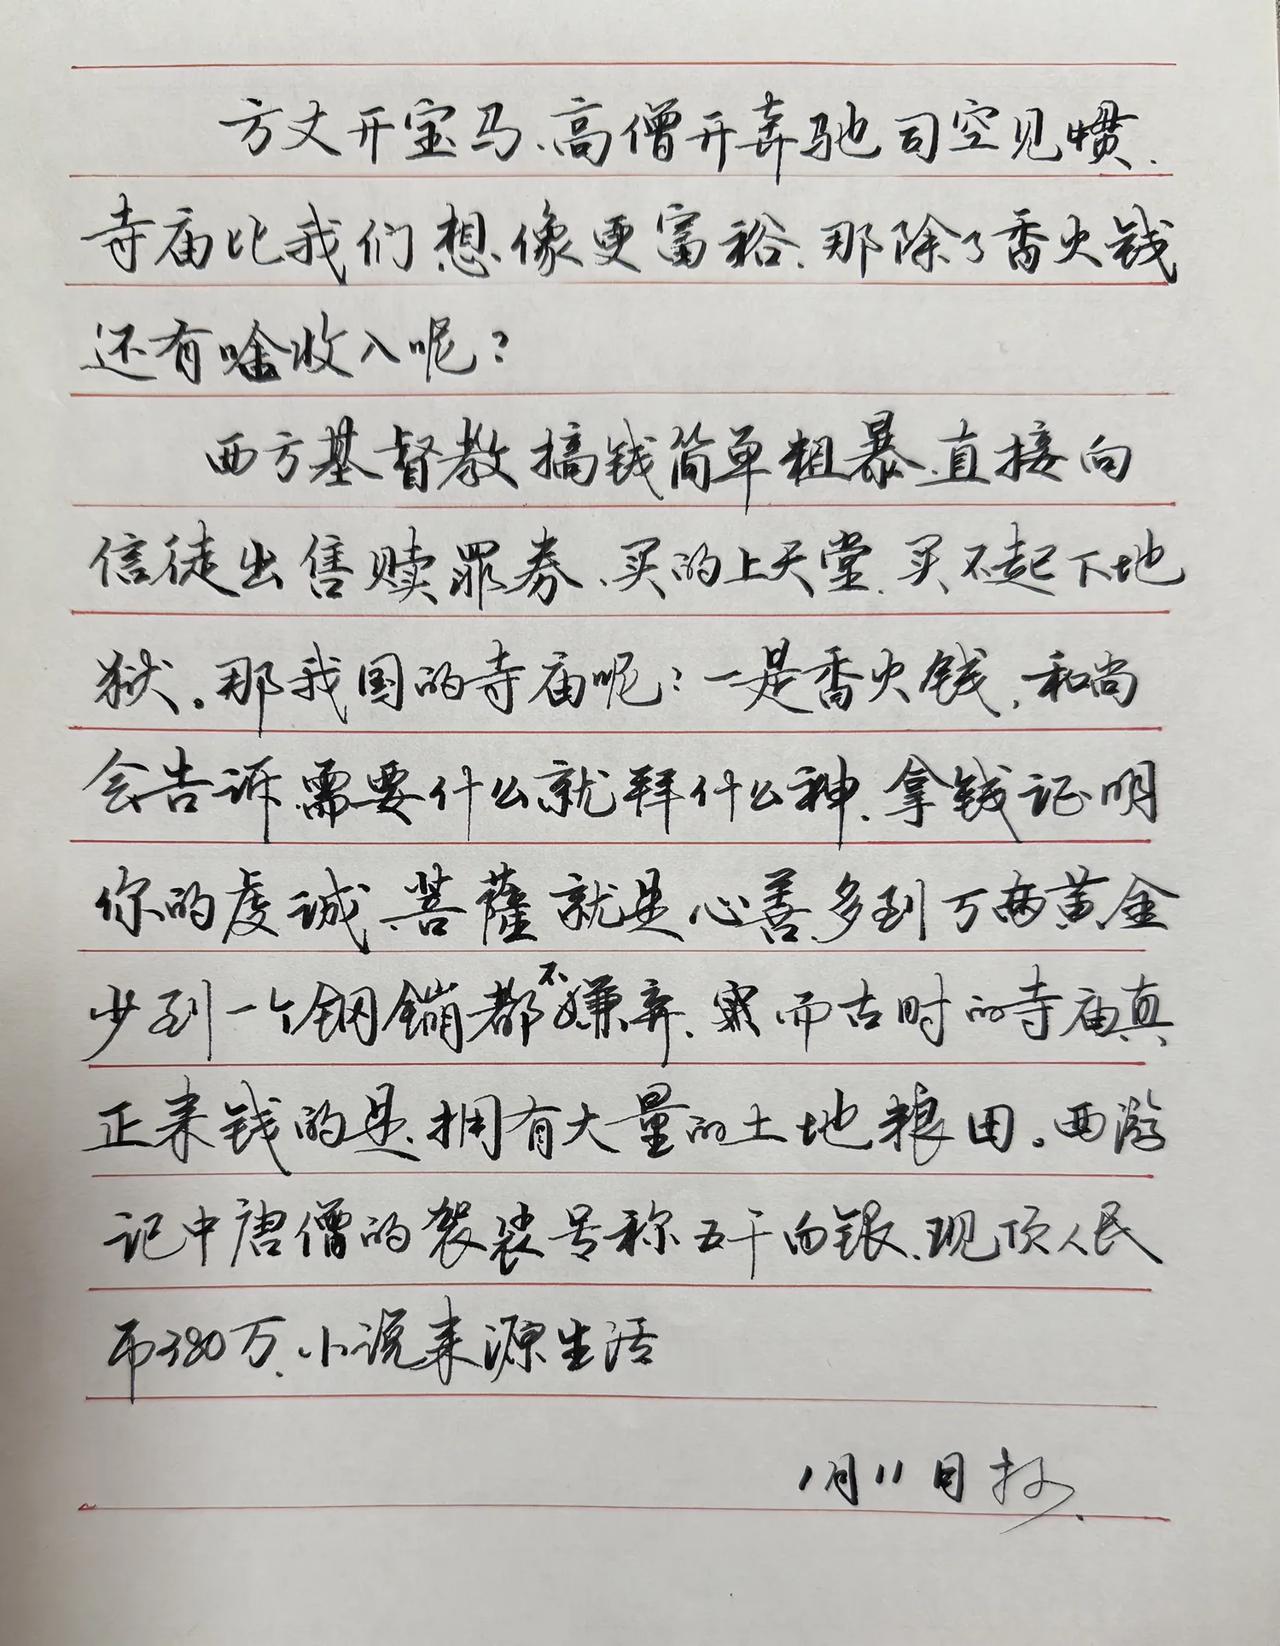 方丈开宝马、高僧开奔驰司空见惯、
寺庙比我们想像更富裕、那除了香火钱
还有啥收入呢？
西方基督教搞钱简单粗暴、直接向
信徒出售赎罪券、买的上天堂、买不起下地
狱。那我国的寺庙呢？一是香火钱，和尚
会告诉需要什么就拜什么神、拿钱证明
你的虔诚、菩萨就是心善、多到万两黄金
少到一个钢镚都不嫌弃、然而古时的寺庙真
正来钱的是、拥有大量的土地粮田。西游
记中唐僧的袈裟号称五千两银、现顶人民
币380万、小说来源生活
1月11日抄、